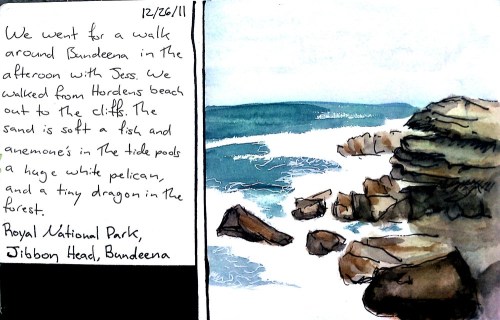 12/26/11
We went for a walk
around Bundeena in the
afteroon with Jess. We
walked from Hordens beach
out to the cliffs. The
sand is soft a fish and
anemone's in the tide pools
a huge white pelican,
and a tiny dragon in the
forest.
Royal National Park,
Jibbon Head, Bundeena